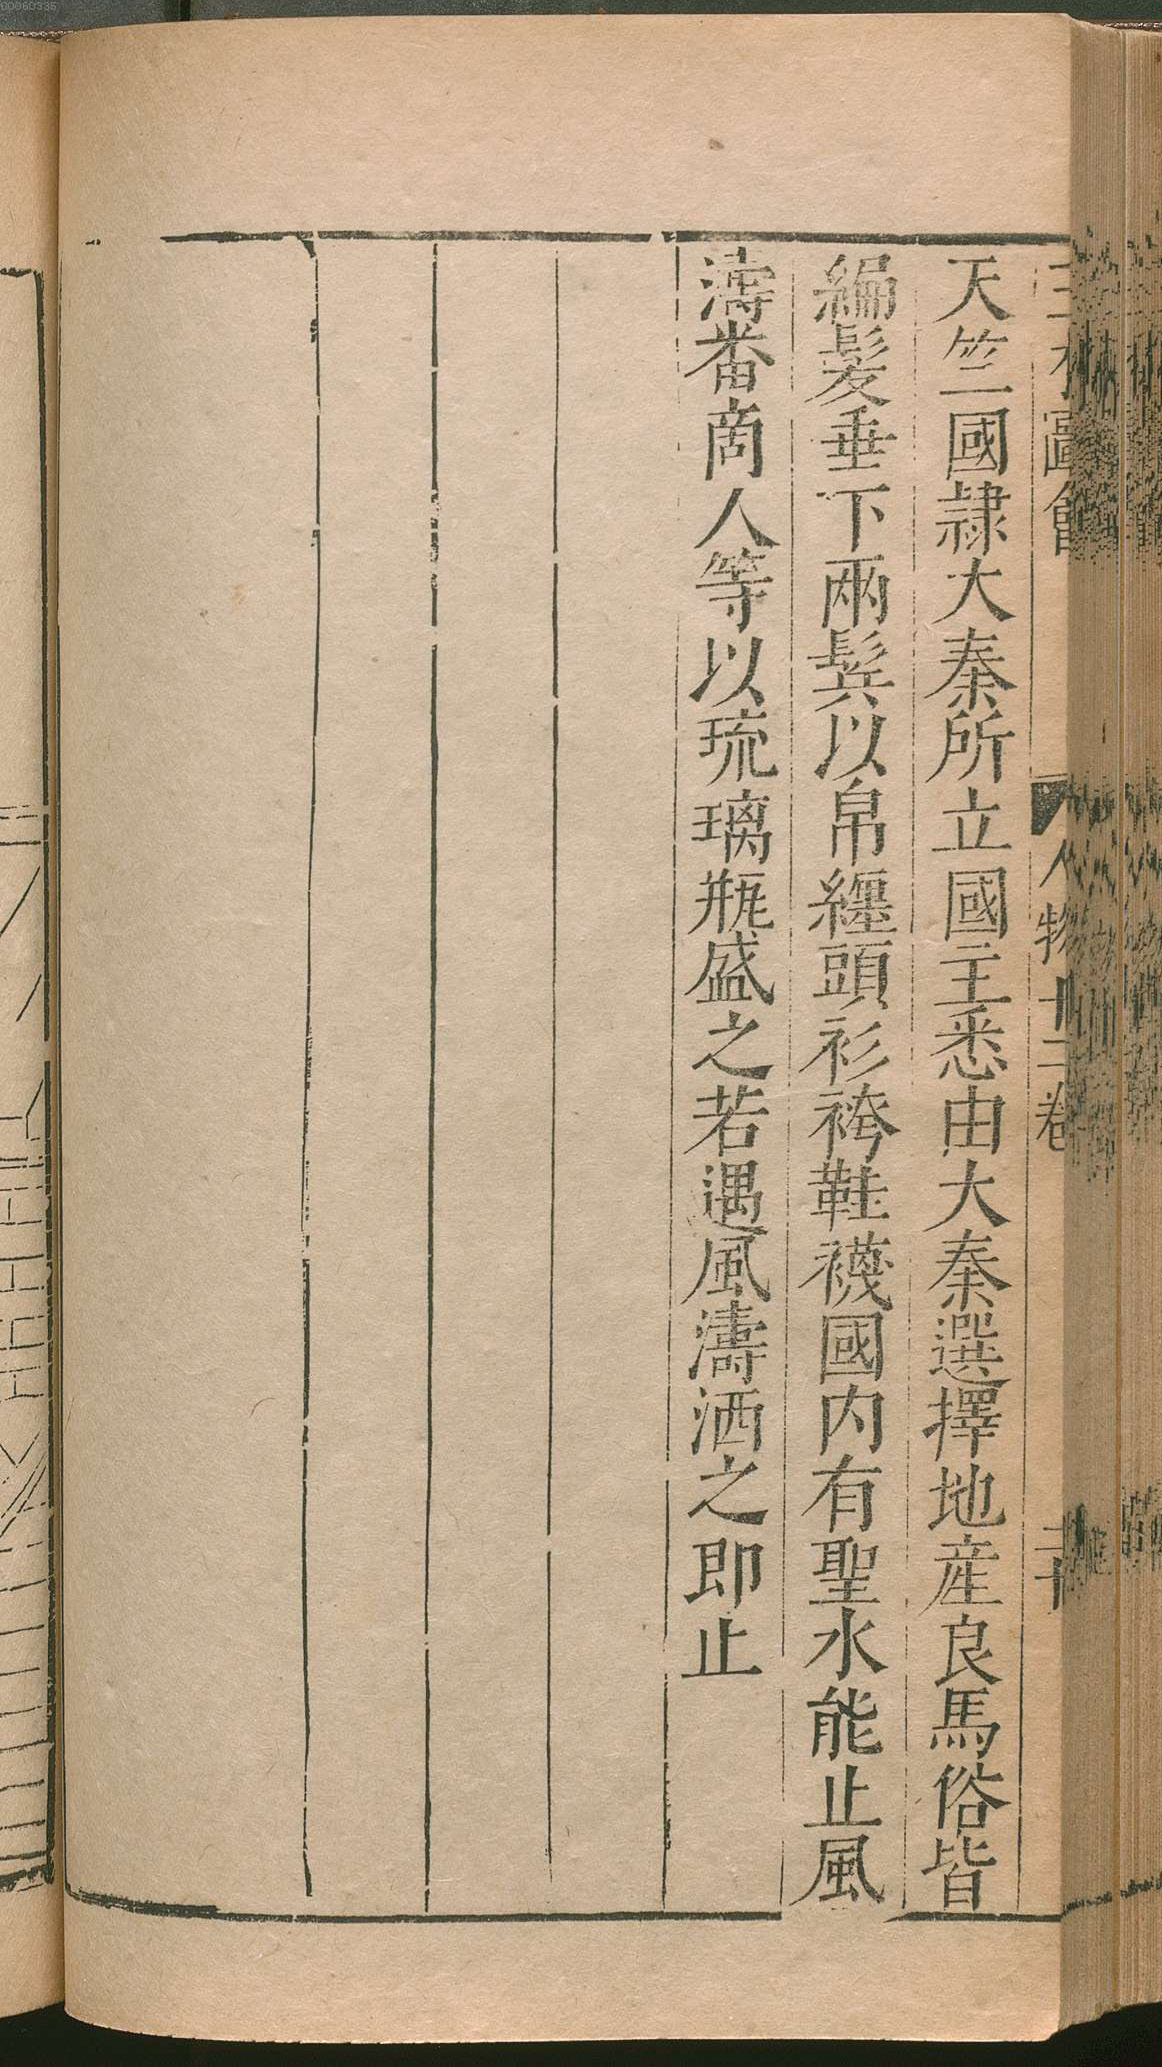 三才圖會 人物十三卷
天竺國隷大秦所立國主悉由大秦選擇地産良馬俗皆
編髮垂下兩鬢以帛纒頭衫袴鞋襪國内有聖水能止風
濤番商人等以琉璃瓶盛之若遇風濤洒之即止
00060335